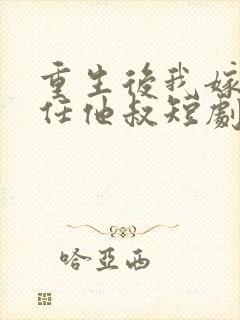 重生後我嫁
任他叔短劇
哈亞西